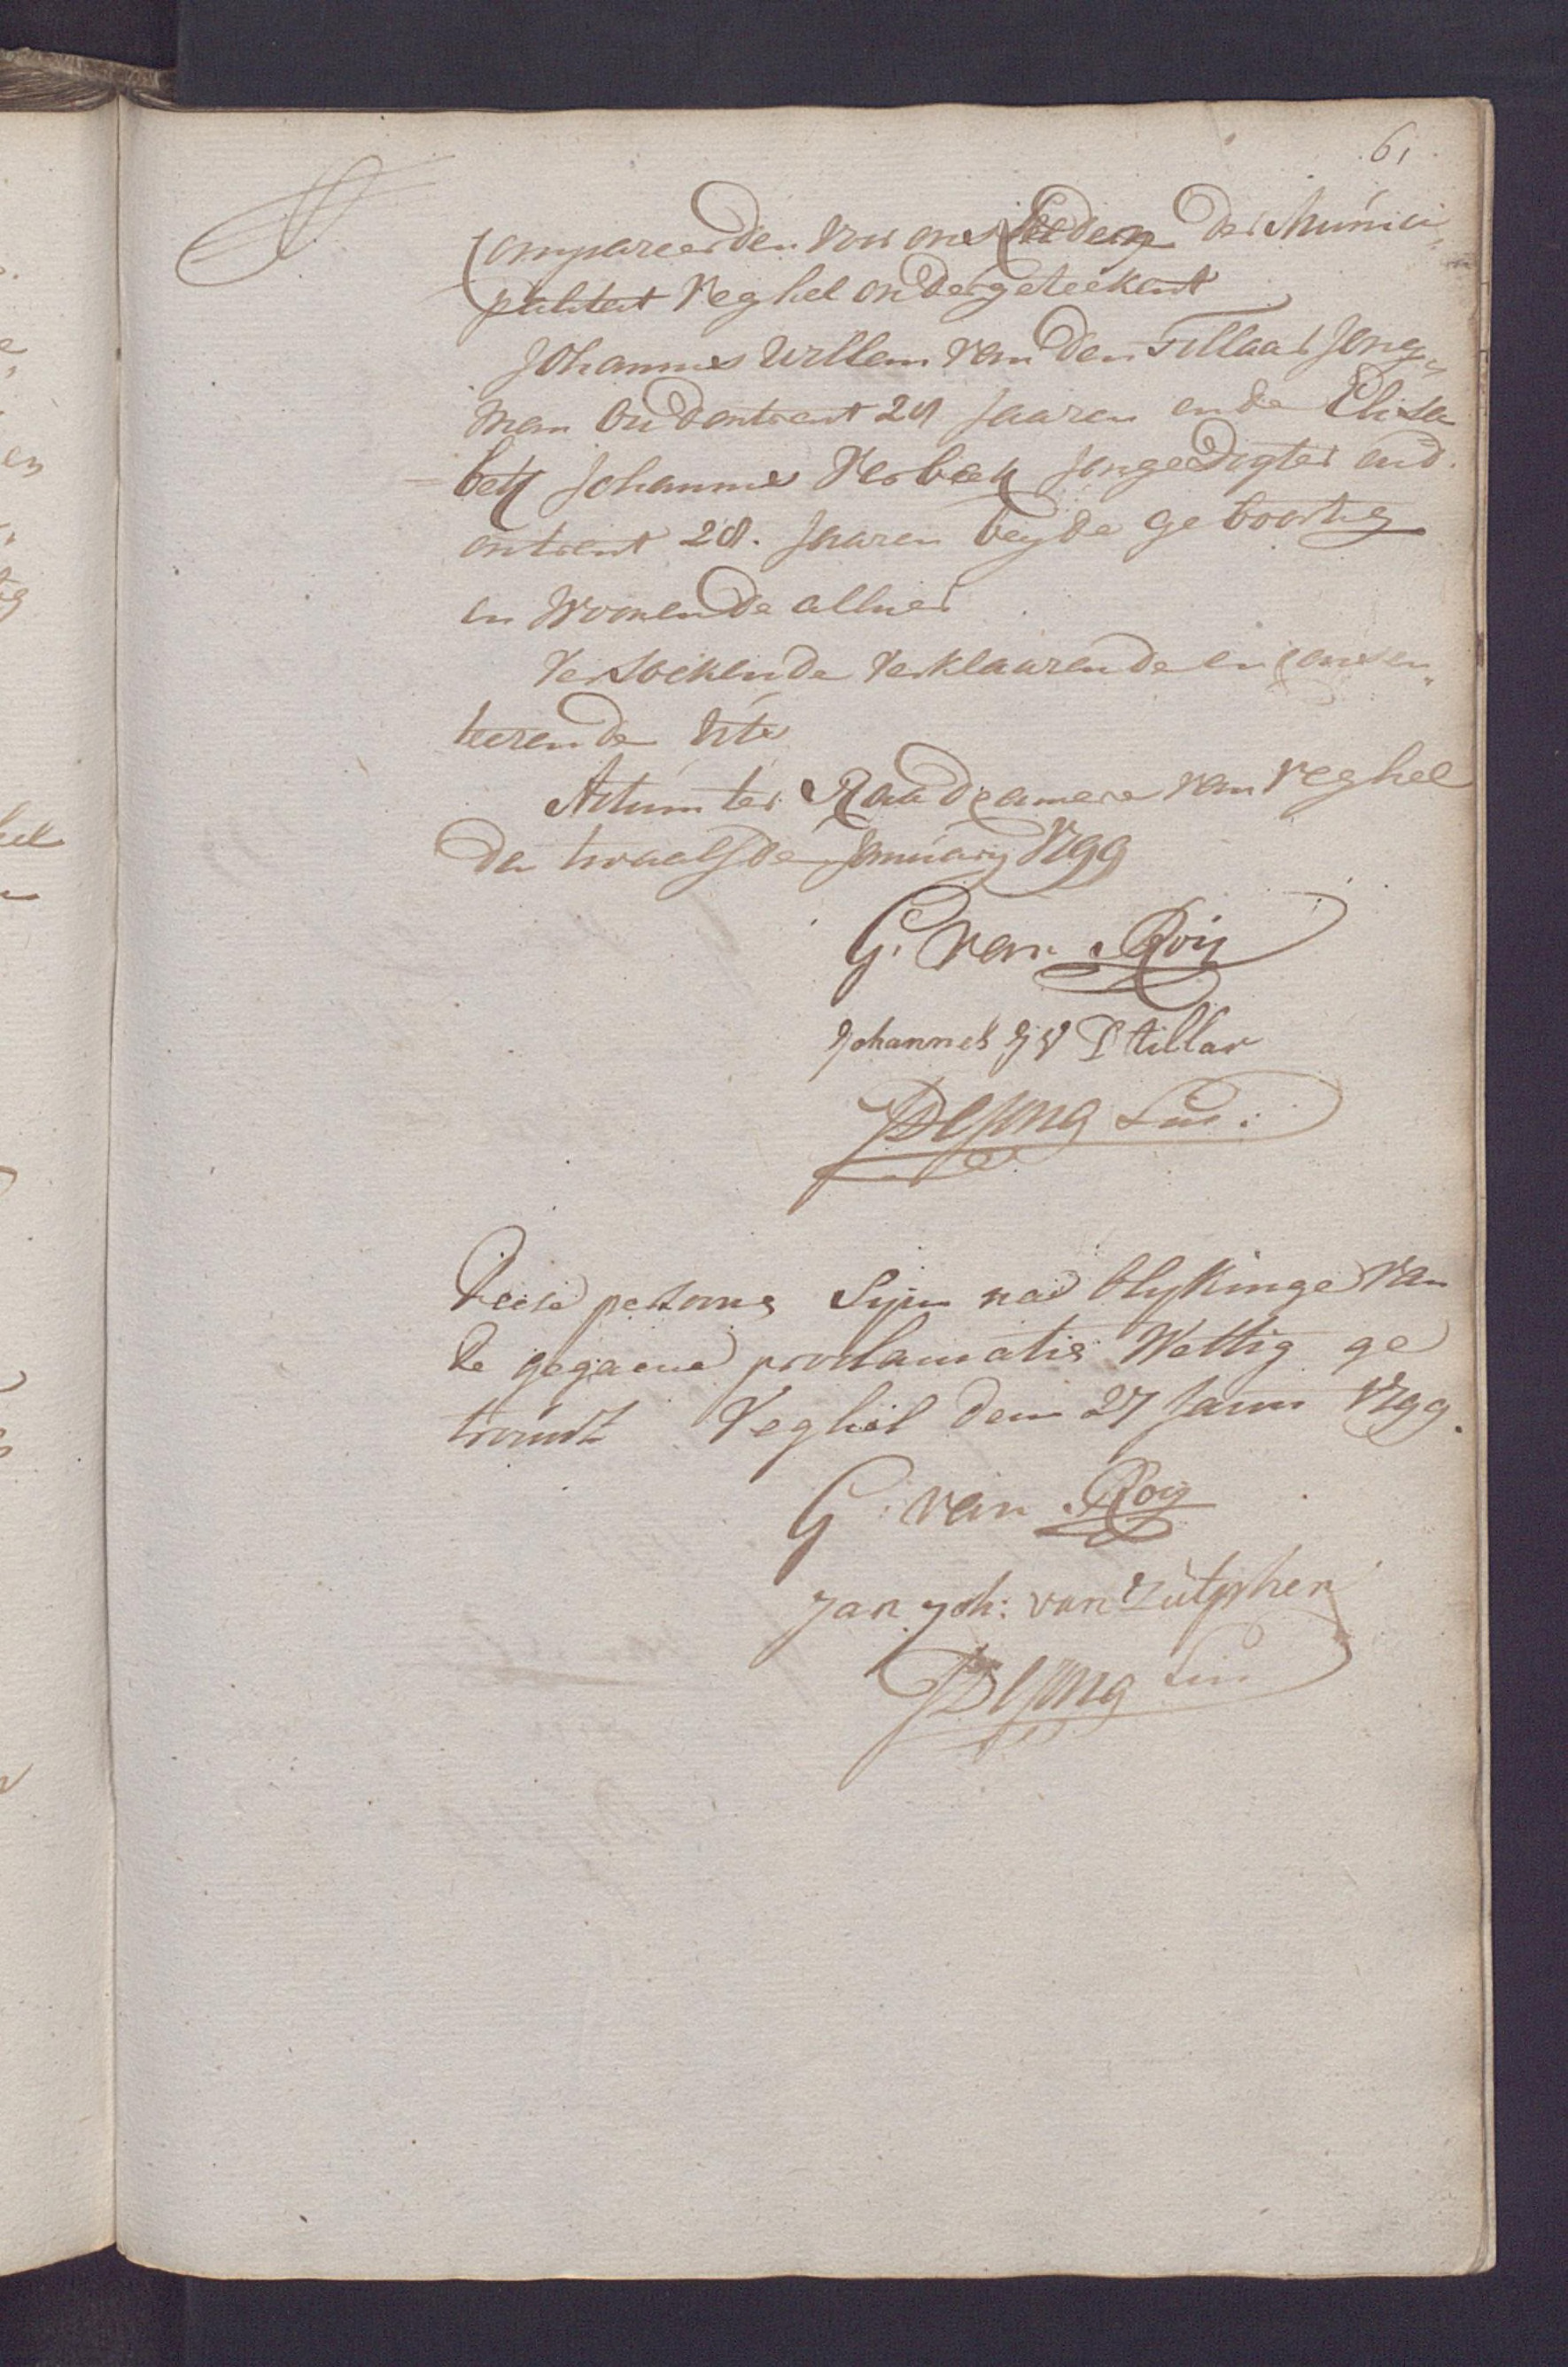 61
Compareerden voor ons Leeden der Munici„
paliteit Veghel ondergeteekent
Johannes Willem van den Tillaar Jong„
man oud ontrent 28 Jaaren ende Elisa
beth Johannes Verbeek Jongedogter oud
ontrent 28. Jaaren beyde geboortig
en Woonende alhier
Versoekende verklaarende en consen„
teerende &tc
Actum ter Raadcamere van Veghel
den twaalfde January 1799
G. van Roij
Johannes V D tillar
DeJong Sec.
Deese persoons Sijn naer blijkinge van
de gegaene proclamatie Wettig ge
trouwt Veghel den 27 Janu 1799.
G. van Roij
Jan Joh: van Zutphen
DeJong
en
hel